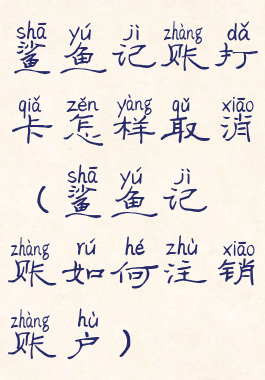 shā yú jì zhàng dǎ
鲨鱼记账打
qiǎ zěn yàng qǔ xiāo
卡怎样取消
shā yú jì
(鲨鱼记
zhàng rú hé zhù xiāo
账如何注销
zhàng hù
账户)